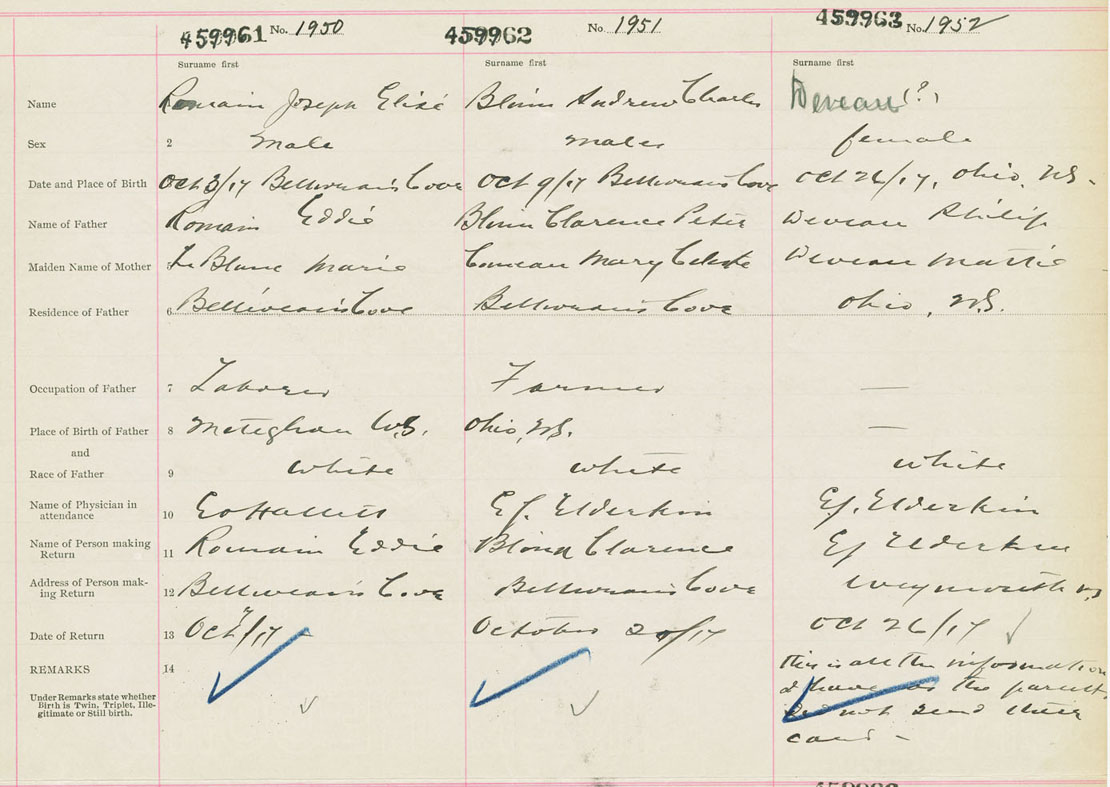 459961 No. 1950 459962 No. 1951 459963 No. 1952
Surname first Surname first Surname first
Name Romain Joseph Elisé Blinn Andrew Charles Deveau (?)
Sex 2 Male males female
Date and Place of Birth Oct 3/17 Belliveau's Cove Oct 9/17 Belliveau's Cove Oct 26/17, Ohio, N.S.
Name of Father Romain Eddie Blinn Clarence Peter Deveau Philip
Maiden Name of Mother 5 Le Blanc Marie Comeau Mary Celeste Deveau Mattie
Residence of Father 6 Belliveau's Cove Belliveau's Cove Ohio, N.S.
Occupation of Father 7 Laborer Farmer —
Place of Birth of Father 8 Meteghan N.S. Ohio, N.S. —
and
Race of Father 9 white white white
Name of Physician in
attendance 10 E. J. Elderkin E. J. Elderkin
Name of Person making
Return 11 Romain Eddie Clarence E J Elderkin
Address of Person mak-
ing Return 12 Belliveau's Cove Belliveau's Cove Weymouth N.S
Date of Return 13 Oct 7/17 October 20/17 Oct 26/17
REMARKS 14 this is all the information
Under Remarks state whether I have as the parents
Birth is Twin, Triplet, Ille- did not send their
gitimate or Still birth. card -